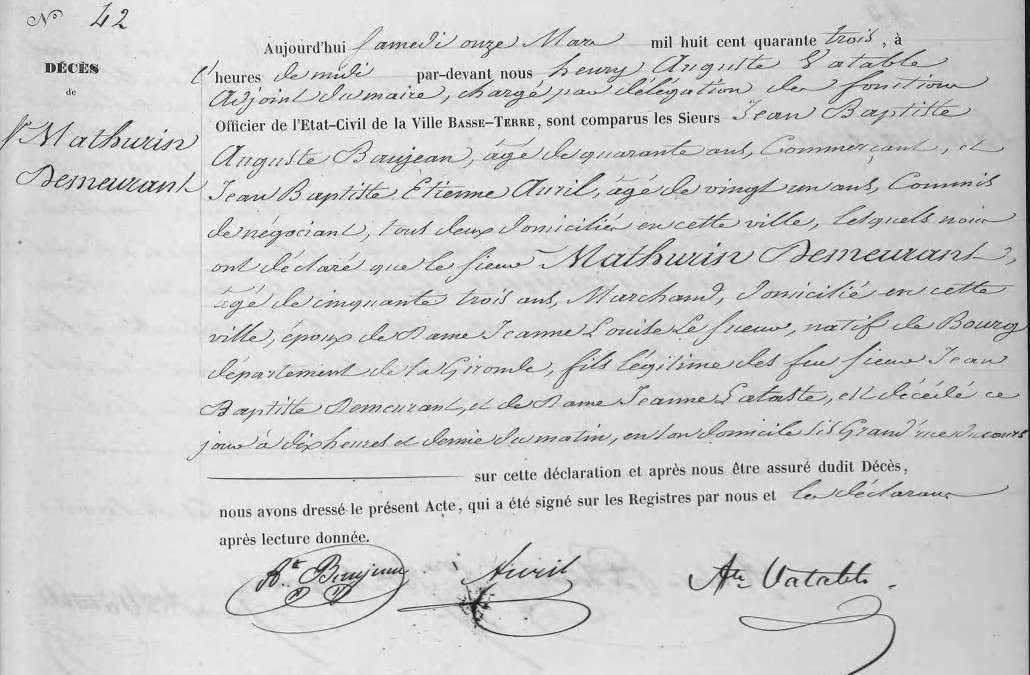 N° 42
DÉCÈS
de
Sr Mathurin
Demeurant
Aujourd'hui samedi onze Mars mil huit cent quarante trois, à
heures de midi par-devant nous henry Auguste Vatable
Adjoint du maire, chargé par délégation des fonctions
Officier de l'Etat-Civil de la Ville BASSE-TERRE, sont comparus les Sieurs Jean Baptiste
Auguste Baujean, âgé de quarante ans, Commerçant, et
Jean Baptiste Etienne Avril, âgé de vingt un ans, Commis
de négociant, tous deux domiciliés en cette ville, lesquels nous
ont déclaré que le sieur Mathurin Demeurant,
âgé de cinquante trois ans, Marchand, domicilié en cette
ville, époux de Dame Jeanne Louise Le sueur, natif de Bourg
département de la Gironde, fils légitime des feu sieur Jean
Baptiste Demeurant, et de Dame Jeanne Lataste, est décédé ce
jour à dix heures et demie du matin, en son domicile sis Grand'rue du cours
sur cette déclaration et après nous être assuré dudit Décès,
nous avons dressé le présent Acte, qui a été signé sur les Registres par nous et les déclarans
après lecture donnée.
Ate Baujean Avril Ate Vatable.